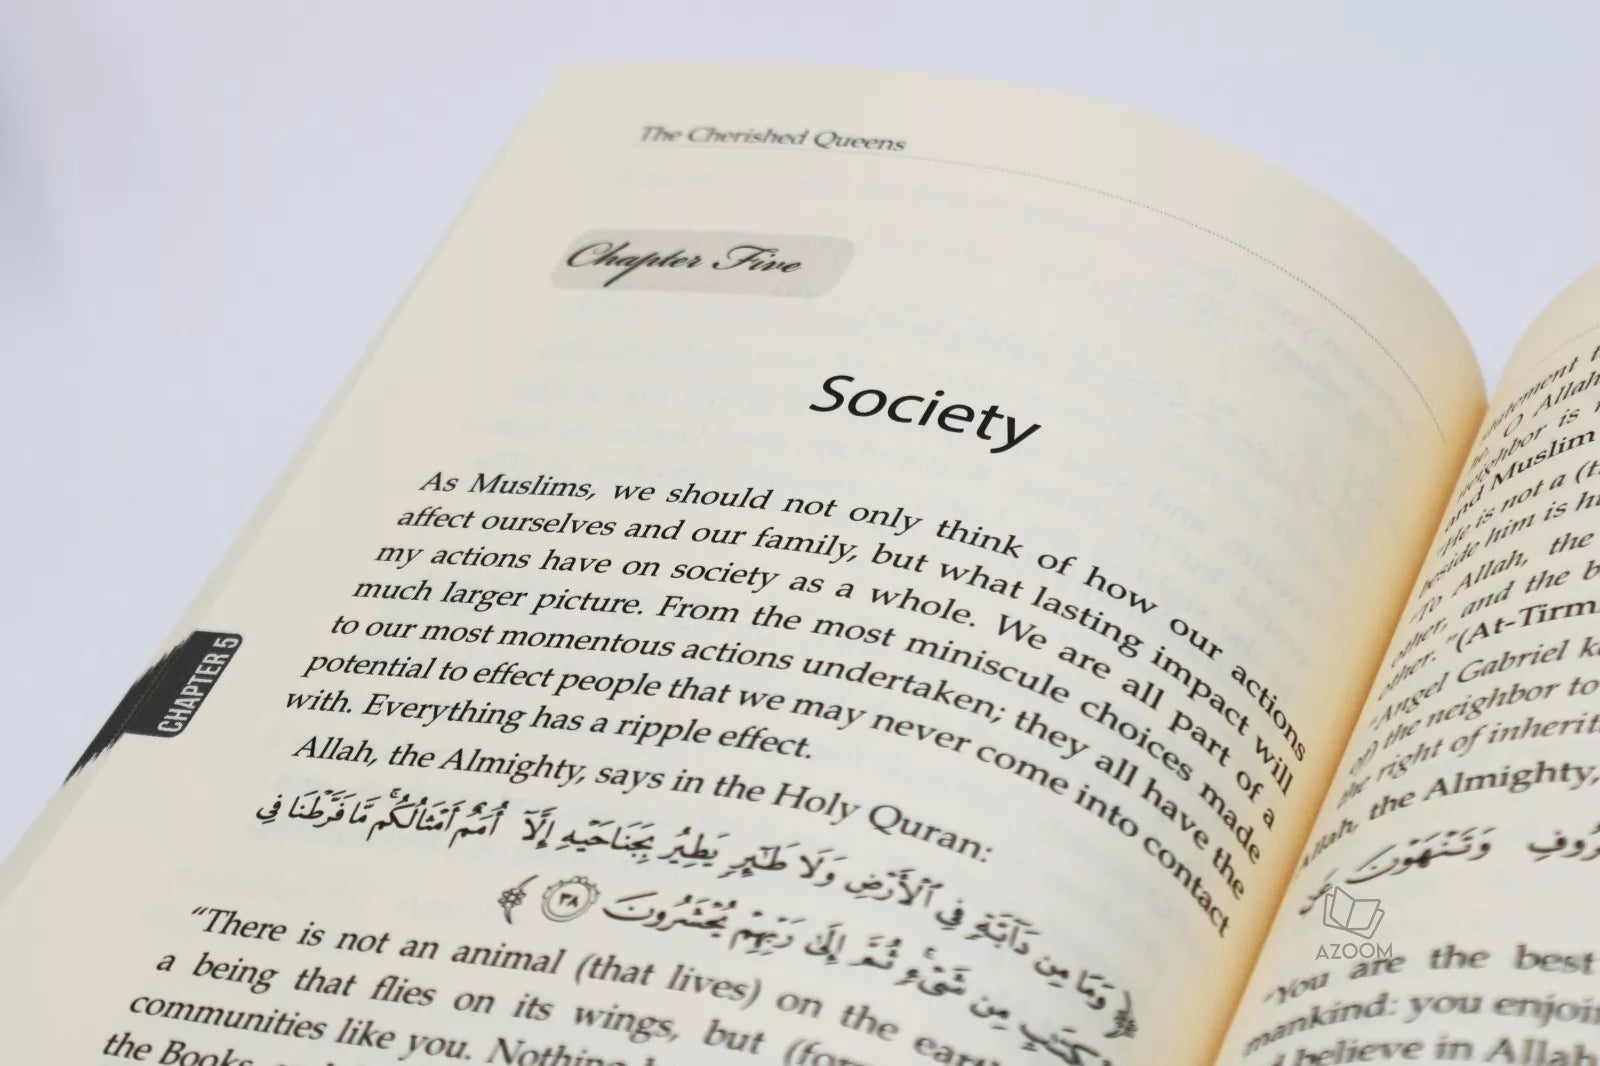 The Cherished Queens
Chapter Five
Society
As Muslims, we should not only think of how our actions
affect ourselves and our family, but what lasting impact will
my actions have on society as a whole. We are all part of a
much larger picture. From the most miniscule choices made
to our most momentous actions undertaken; they all have the
potential to effect people that we may never come into contact
with. Everything has a ripple effect.
Allah, the Almighty, says in the Holy Quran:
﴿ وَمَا مِن دَآبَّةٍ فِي ٱلْأَرْضِ وَلَا طَـٰٓئِرٍ يَطِيرُ بِجَنَاحَيْهِ إِلَّآ أُمَمٌ أَمْثَالُكُم ۚ مَّا فَرَّطْنَا فِي
ٱلْكِتَـٰبِ مِن شَىْءٍ ۚ ثُمَّ إِلَىٰ رَبِّهِمْ يُحْشَرُونَ ٣٨ ﴾
“There is not an animal (that lives) on the
a being that flies on its wings, but
communities like you. Nothing
the Books
CHAPTER 5
O Allah
is
and Muslim
"He is not a
beside him is
"To Allah, the
other, and the
other."(At-Tirm
"Angel Gabriel
of) the neighbor to
the right of
Allah, the Almighty,
وَتَنْهَوْنَ عَنِ
"You are the best
mankind: you
believe in Allah
AZOOM